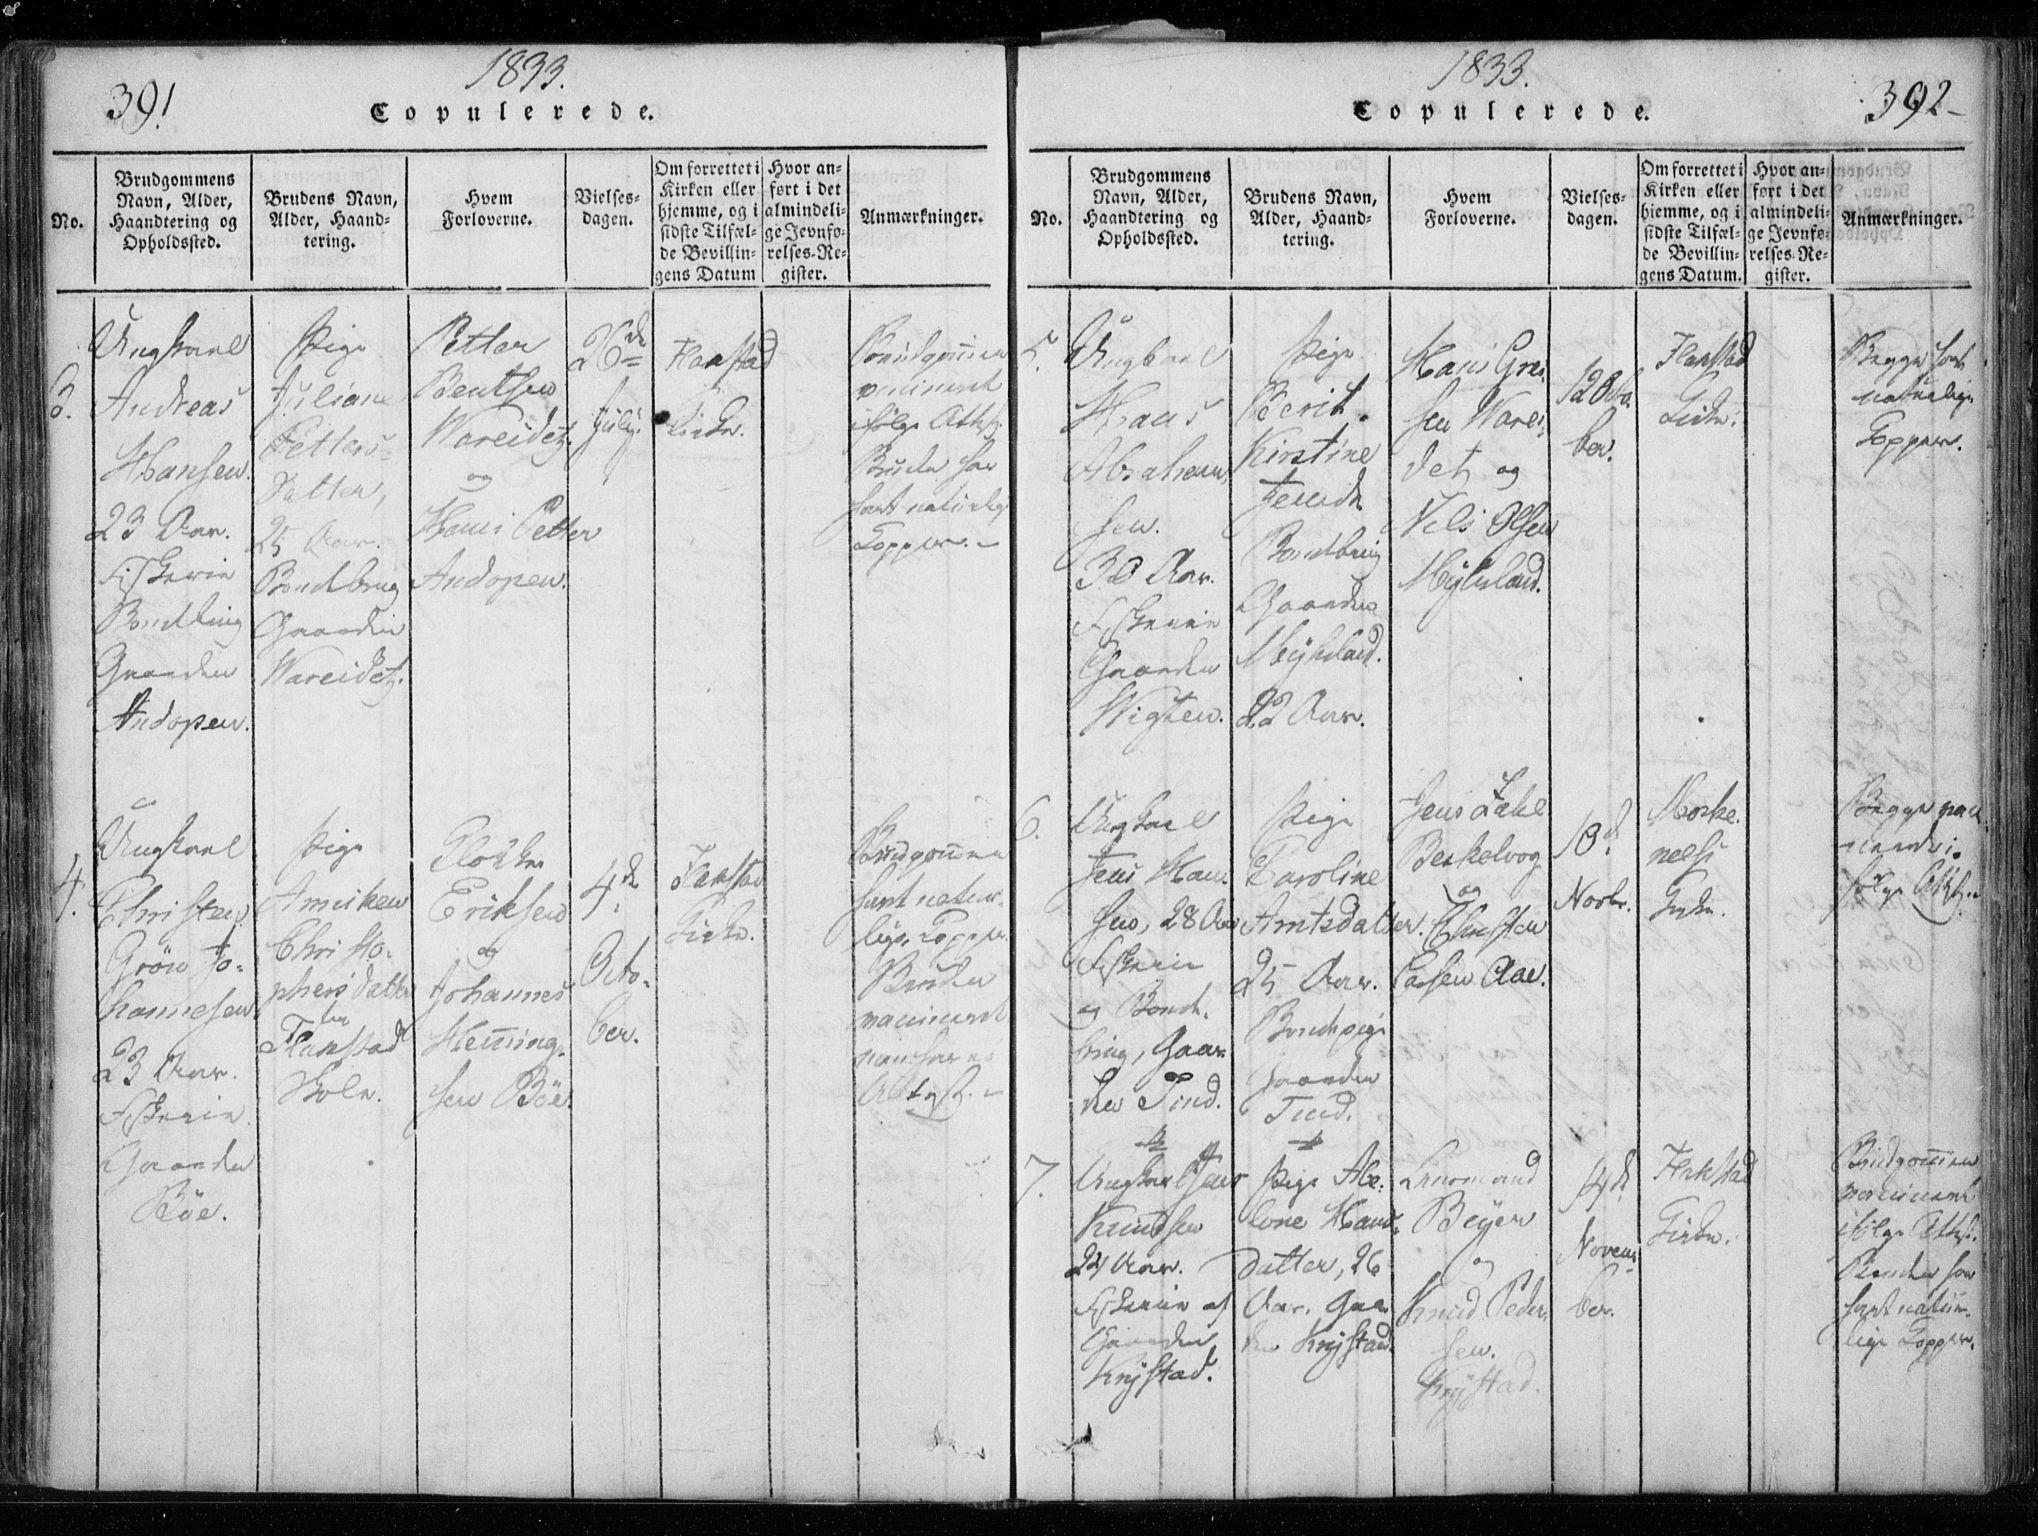 391
1833.
Copulerede.
No.
Brudgommens
Navn, Alder,
Haandtering og
Opholdssted.
Brudens Navn,
Alder, Haand-
tering.
Hvem
Forloverne.
Vielses-
dagen.
Om forrettet i
Kirken eller
hjemme, og i
sidste Tilfæl-
de Bevillin-
gens Datum
Hvor an-
ført i det
almindeli-
ge Jevnfø-
relses-Re-
gister.
Anmærkninger.
3.
Ungkarl
Andreas
Hansen.
23 Aar.
Fiskerie
Gaarden
Andopen.
Pige
Juliane
Petters-
Datter,
25 Aar.
Bondbrug
Gaarden
Wareidet.
Petter
Bentsen
Wareidet.
og
Hans Petter
Andopen.
26de
July.
Flakstad
Kirke.
Brudgommen
vaccineret
ifølge Attest.
Bruden har
havt naturlig
Kopper.
4.
Ungkarl
Christen
Grön Jo-
hannesen
23 Aar.
Fiskerie
Gaarden
Böe.
Pige
Anniken
Christo-
phersdatter
Flakstad
Klokker
Eriksen
og
Johannes
Hemming-
sen Böe.
4de
Octo-
ber.
Flakstad
Kirke.
Brudgommen
havt natur-
lige Kopper.
Bruden
vaccineret
Attest.
392
1833.
Copulerede.
No.
Brudgommens
Navn, Alder,
Haandtering og
Opholdssted.
Brudens Navn,
Alder, Haand-
tering.
Hvem
Forloverne.
Vielses-
dagen.
Om forrettet i
Kirken eller
hjemme, og i
sidste Tilfæl-
de Bevillin-
gens Datum.
Hvor an-
ført i det
almindeli-
ge Jevnfø-
relses-Re-
gister.
Anmærkninger.
5.
Ungkarl
Hans
Abraham-
sen.
30 Aar.
Fiskerie
Gaarden
Wigten.
Pige
Berit
Kirstine
Bondbrug
Gaarden
Myhrland.
22 Aar.
Hans
sen Warei-
det og
Nels Olsen
Myhrland.
12 Octo-
ber.
Flakstad
Kirke.
Begge havt
naturlige
Kopper.
6.
Ungkarl
Jens Han-
sen, 28 Aar
Fiskerie
og Bond-
brug, Gaar-
den Tind.
Pige
Caroline
Amtsdatter.
25 Aar.
Bondepige
Gaarden
Tind.
Jens
og Christen
Larsen Aae.
10de
Novbr.
Moske-
næs
Kirke.
Begge vac-
cineret i-
følge Attest.
7.
Ungkarl Jens
Knudsen
24 Aar.
Fiskerie af
Gaarden
Krystad.
Pige Abe-
lone Hans-
datter, 26
Aar. Gaar-
den Krystad.
Lensmand
Beyer
og
Knud Peder-
sen.
Krystad.
14de
Novem-
ber.
Flakstad
Kirke.
Brudgommen
vaccineret
ifølge Attest.
Bruden har
havt natur-
lige Kopper.